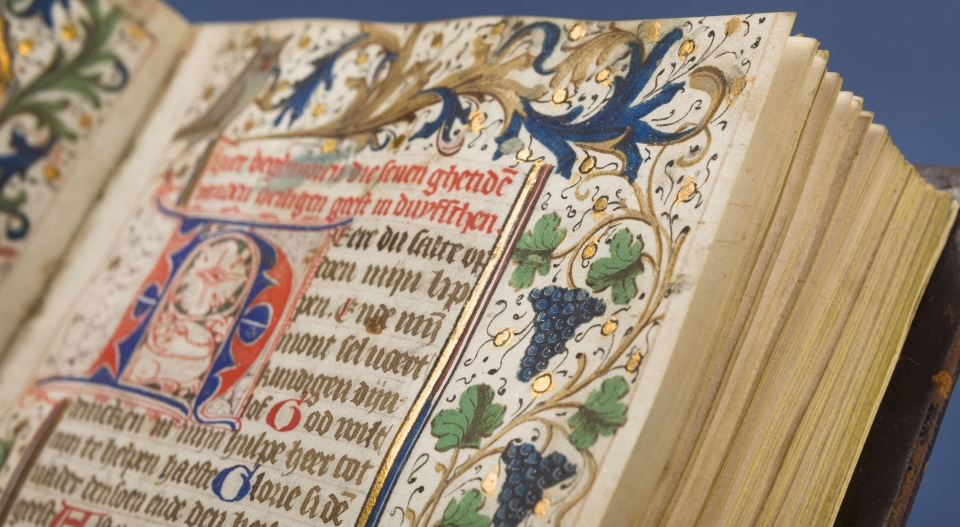 Hier beghinnen die seuen ghetidē
vanden heilighen geest in duyftschen
HEere du salte op
doen mijn lip
pen. Ende mij
mont sel uaert
kundigen dijn
lof God wilt
dencken in mijn hulpe heer tot
mi te helpen haeste Glorie si dē
uader den soen ende den hei
geest